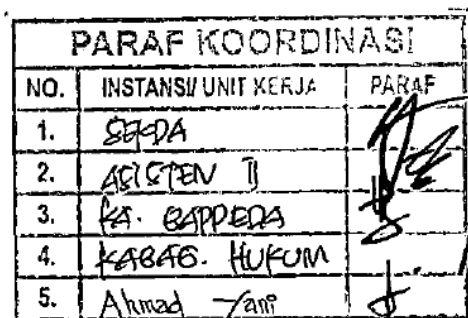 PARAF KOORDINASI
NO. INSTANSI/ UNIT KERJA PARAF
1. SEKDA
2. ASISTEN II
3. KA. BAPPEDA
4. KABAG. HUKUM
5. Ahmad Yani